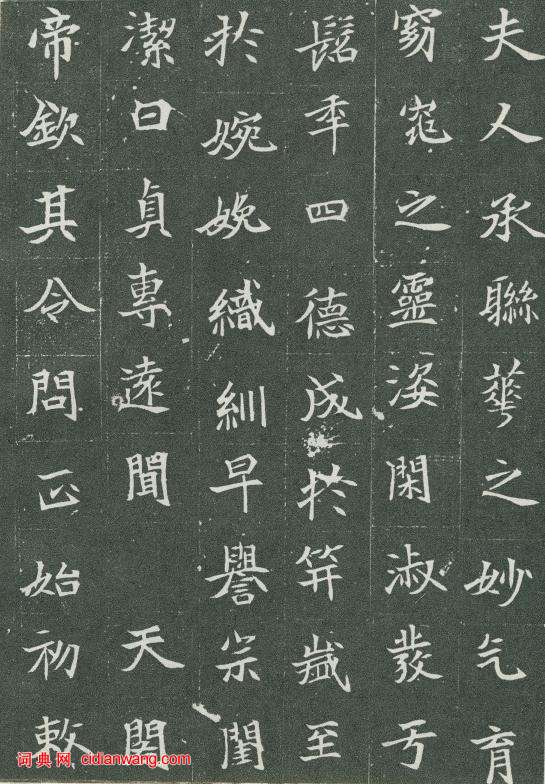 夫人承聯華之妙气育
窈窕之靈姿閑淑發于
髫年四德成於笄歲至
於婉娩織紃早譽宗閨
潔曰貞專遠聞 天
帝欽其令問正始初敕
词典网 cidianwang.com